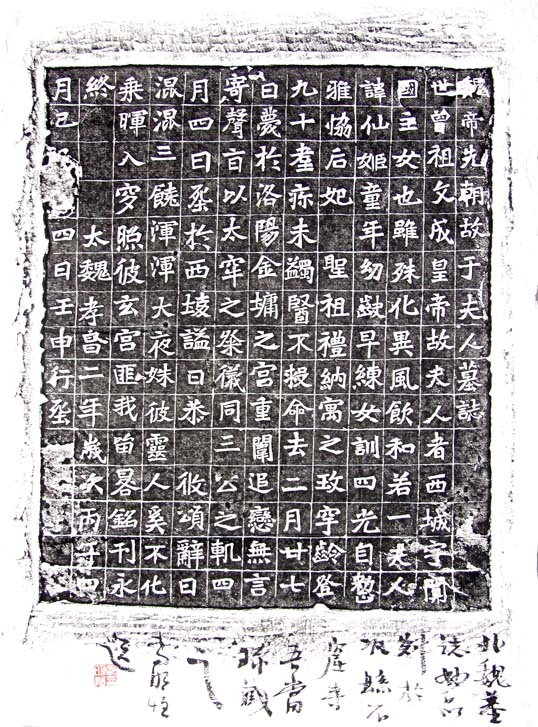 魏帝先朝故于夫人墓誌
世曾祖文成皇帝故夫人者西城宇闐
國主女也雖殊化異風飲和若一夫人
諱仙姬童年幼齔早練女訓四光自整
雅恊后妃 聖祖禮納寓之玫宇齡登
九十耋痾未蠲醫不救命去二月廿七
日薨於洛陽金墉之宮重闈追戀無言
寄聲旨以太牢之祭儀同三公之軌四
月四日葬於西陵謚曰恭 攸頌辭曰
混混三饒渾渾大夜姝彼靈人奚不化
乘暉入穸照彼玄宮匪我留晷銘刊永
終 太魏孝昌二年歲次丙午四
月己 四日壬申行葬
北魏墓
誌妙品
刻於
縣石
窟寺
吾當
珍藏
之